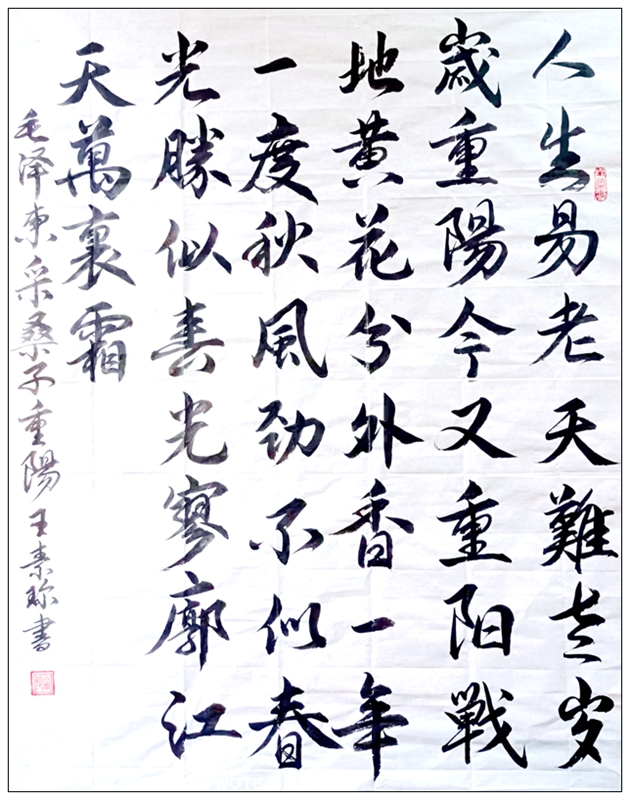 人生易老天難老岁
歲重陽今又重阳戰
地黄花分外香一年
一度秋風劲不似春
光勝似春光寥廓江
天萬裏霜
毛泽東采桑子重陽王素珍書